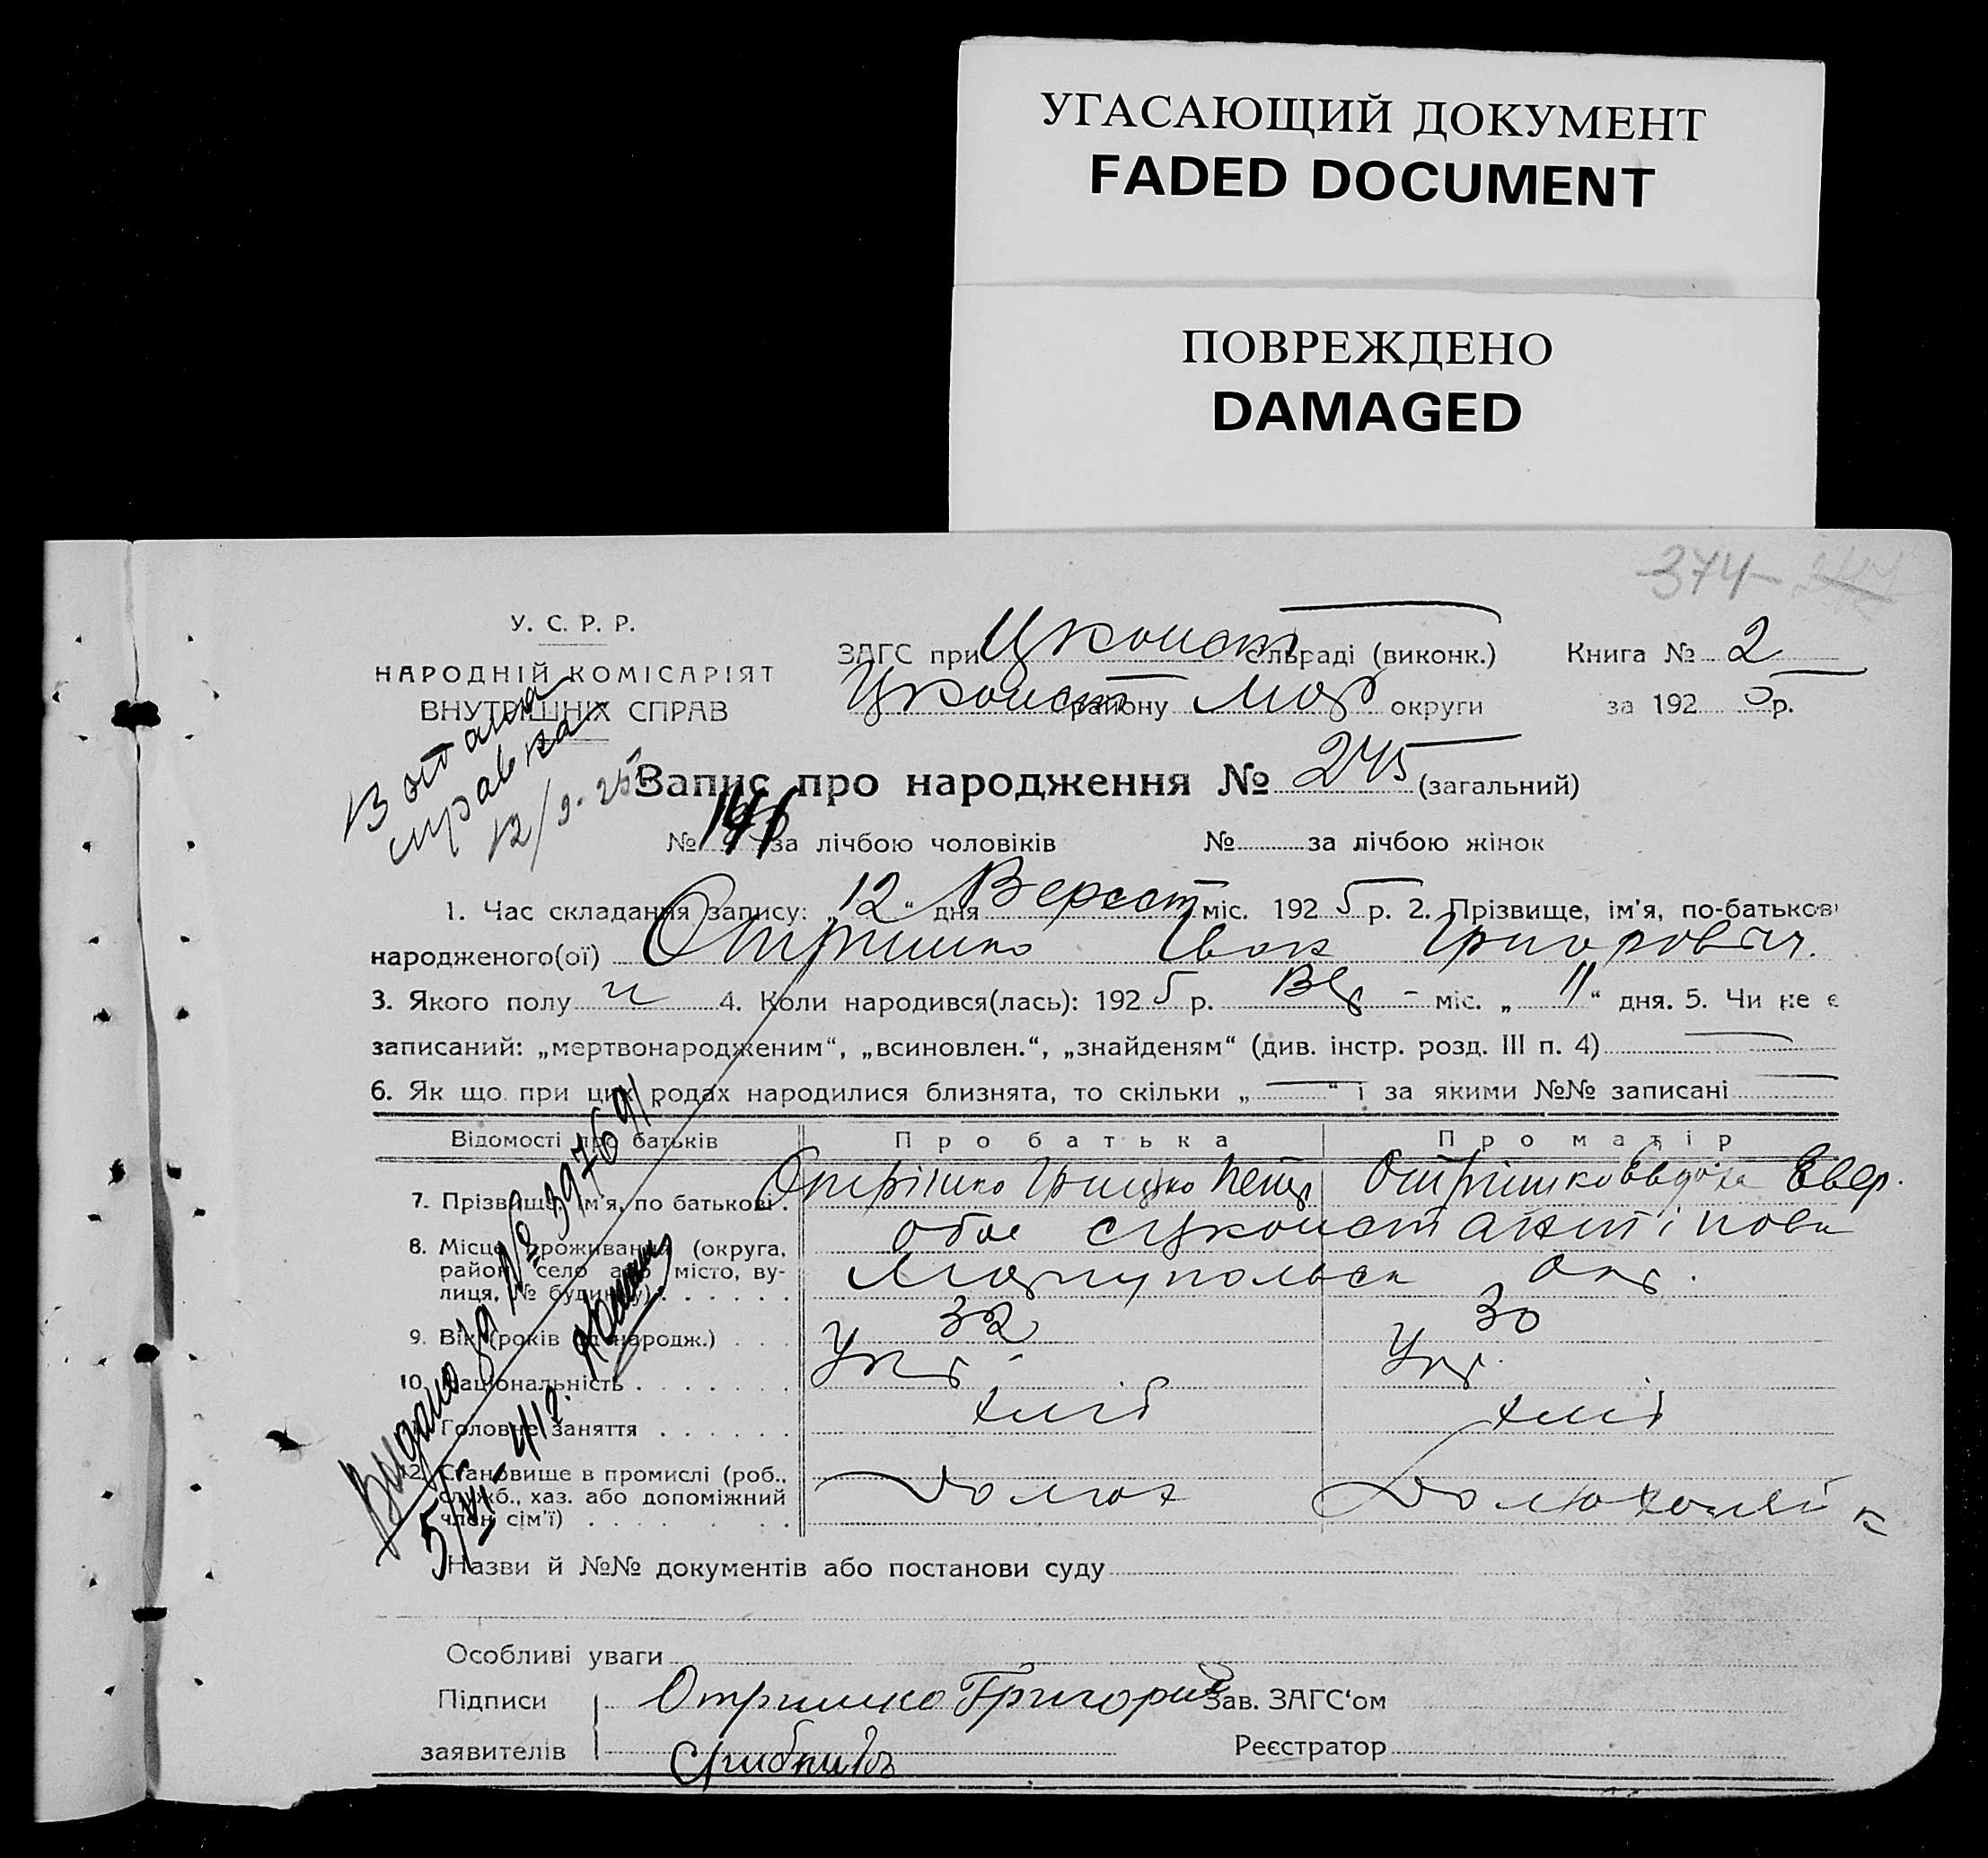 УГАСАЮЩИЙ ДОКУМЕНТ
FADED DOCUMENT
ПОВРЕЖДЕНО
DAMAGED
374
У. С. Р. Р.
НАРОДНІЙ КОМІСАРІЯТ
ВНУТРІШНІХ СПРАВ
ЗАГС при Цконст сільраді (виконк.) Книга № 2
Цконст району Мар округи за 1925 р.
справка
12/9-25
Запис про народження № 245 (загальний)
№ за лічбою чоловіків № за лічбою жінок
1. Час складання запису: „12“ дня Верест міс. 1925 р. 2. Прізвище, ім'я, по-батькові
народженого(ої) Отришко Іван Григорович.
3. Якого полу ч 4. Коли народився(лась): 1925 р. Вер - міс. „11“ дня. 5. Чи не є
записаний: „мертвонародженим“, „всиновлен.“, „знайденям“ (див. інстр. розд. III п. 4)
6. Як що при цих родах народилися близнята, то скільки „ “ і за якими №№ записані
Відомості про батьків Про батька Про матір
7. Прізвище, ім'я, по батькові. Отрішко Грицько Петр Отрішко Евдоха Евер.
8. Місце проживання (округа, обое сцконстантіновк
район, село або місто, ву- Маріупольск Окр.
лиця, № будинку)
9. Вік (років від народж.) 32 30
10. Національність Укр. Укр.
11. Головне заняття хліб хліб
12. Становище в промислі (роб.,
служб., хаз. або допоміжний Домох Домохозяйк
член сім'ї)
Видано № 397691
5/VI-41 г.
Назви й №№ документів або постанови суду
Особливі уваги
Підписи Отришко Григорий Зав. ЗАГС'ом
заявителів Реєстратор